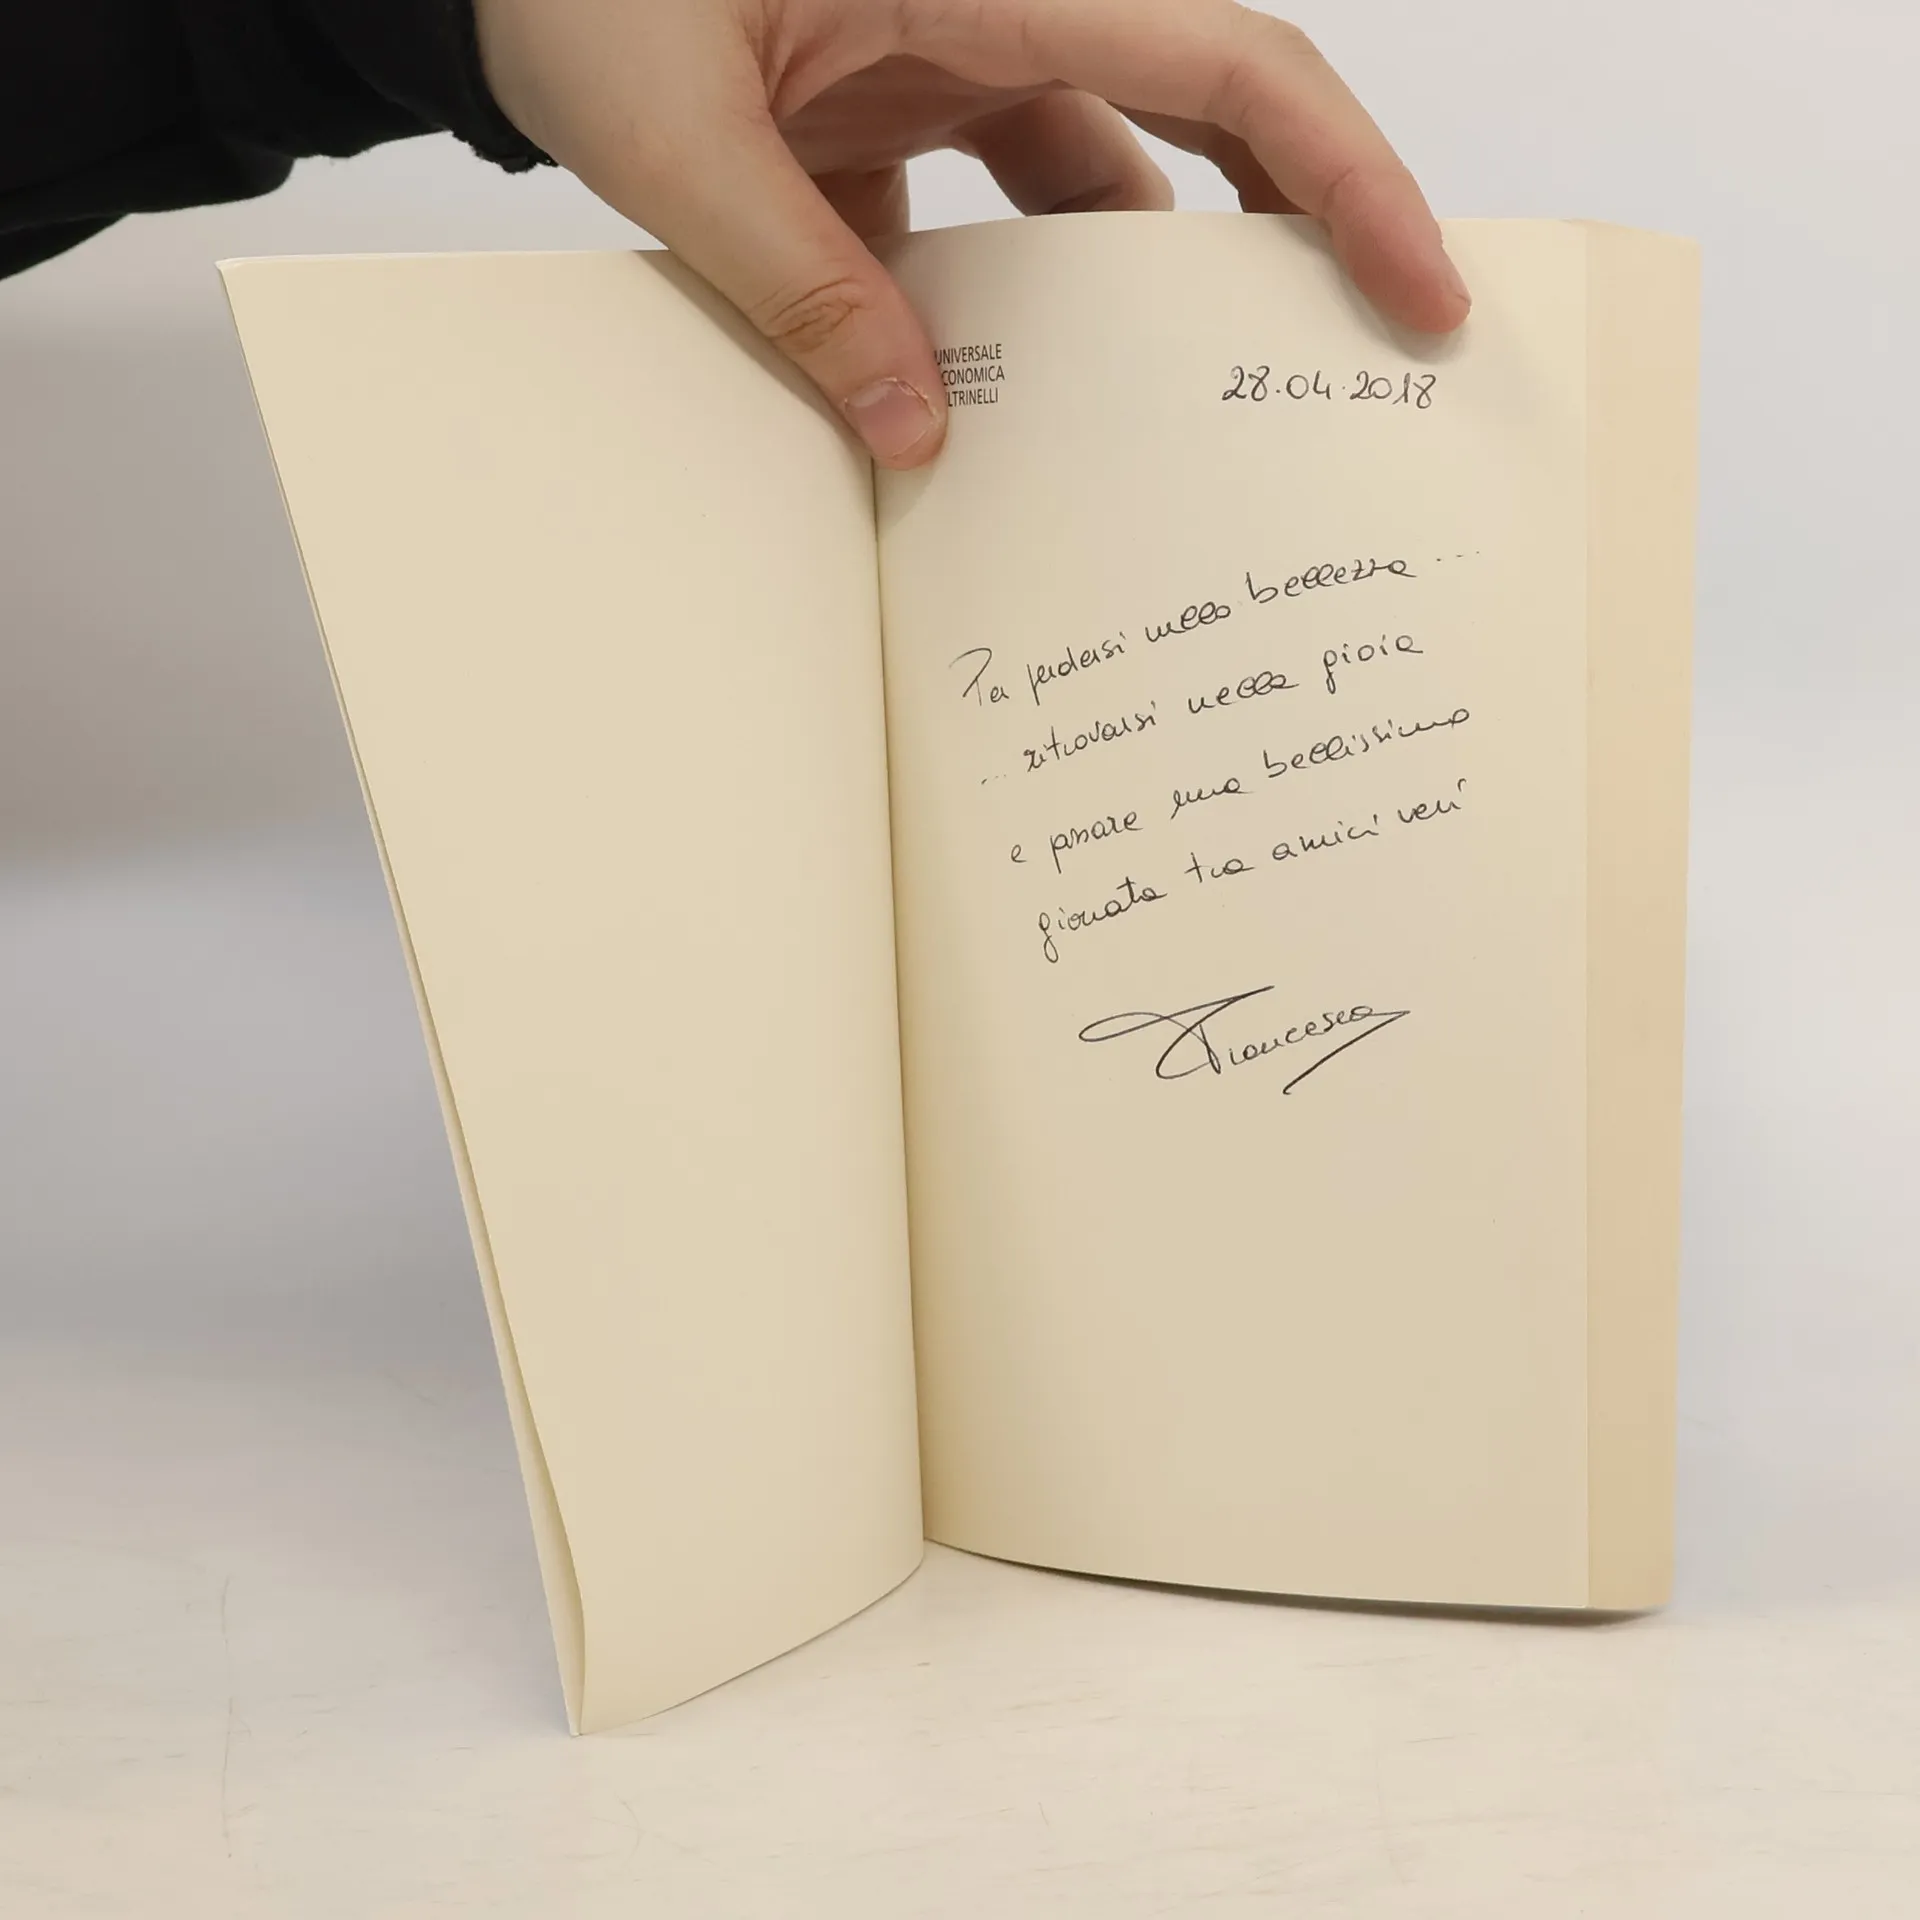 UNIVERSALE
CONOMICA
LTRINELLI
28.04.2018
Per perdersi nella bellezza ...
... ritrovarsi nella gioia
e passare una bellissima
giornata tra amici veri
Francesca